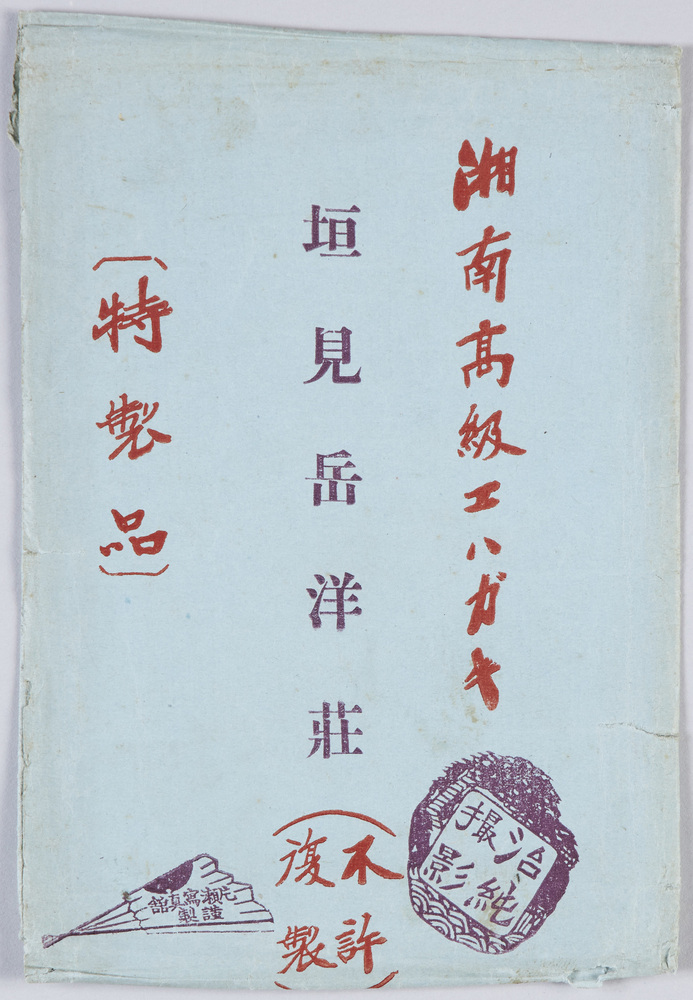 湘南高級エハガキ
垣見岳洋荘
（特製品）
（不許
復製）
治純
撮影
元瀬写真館
謹製